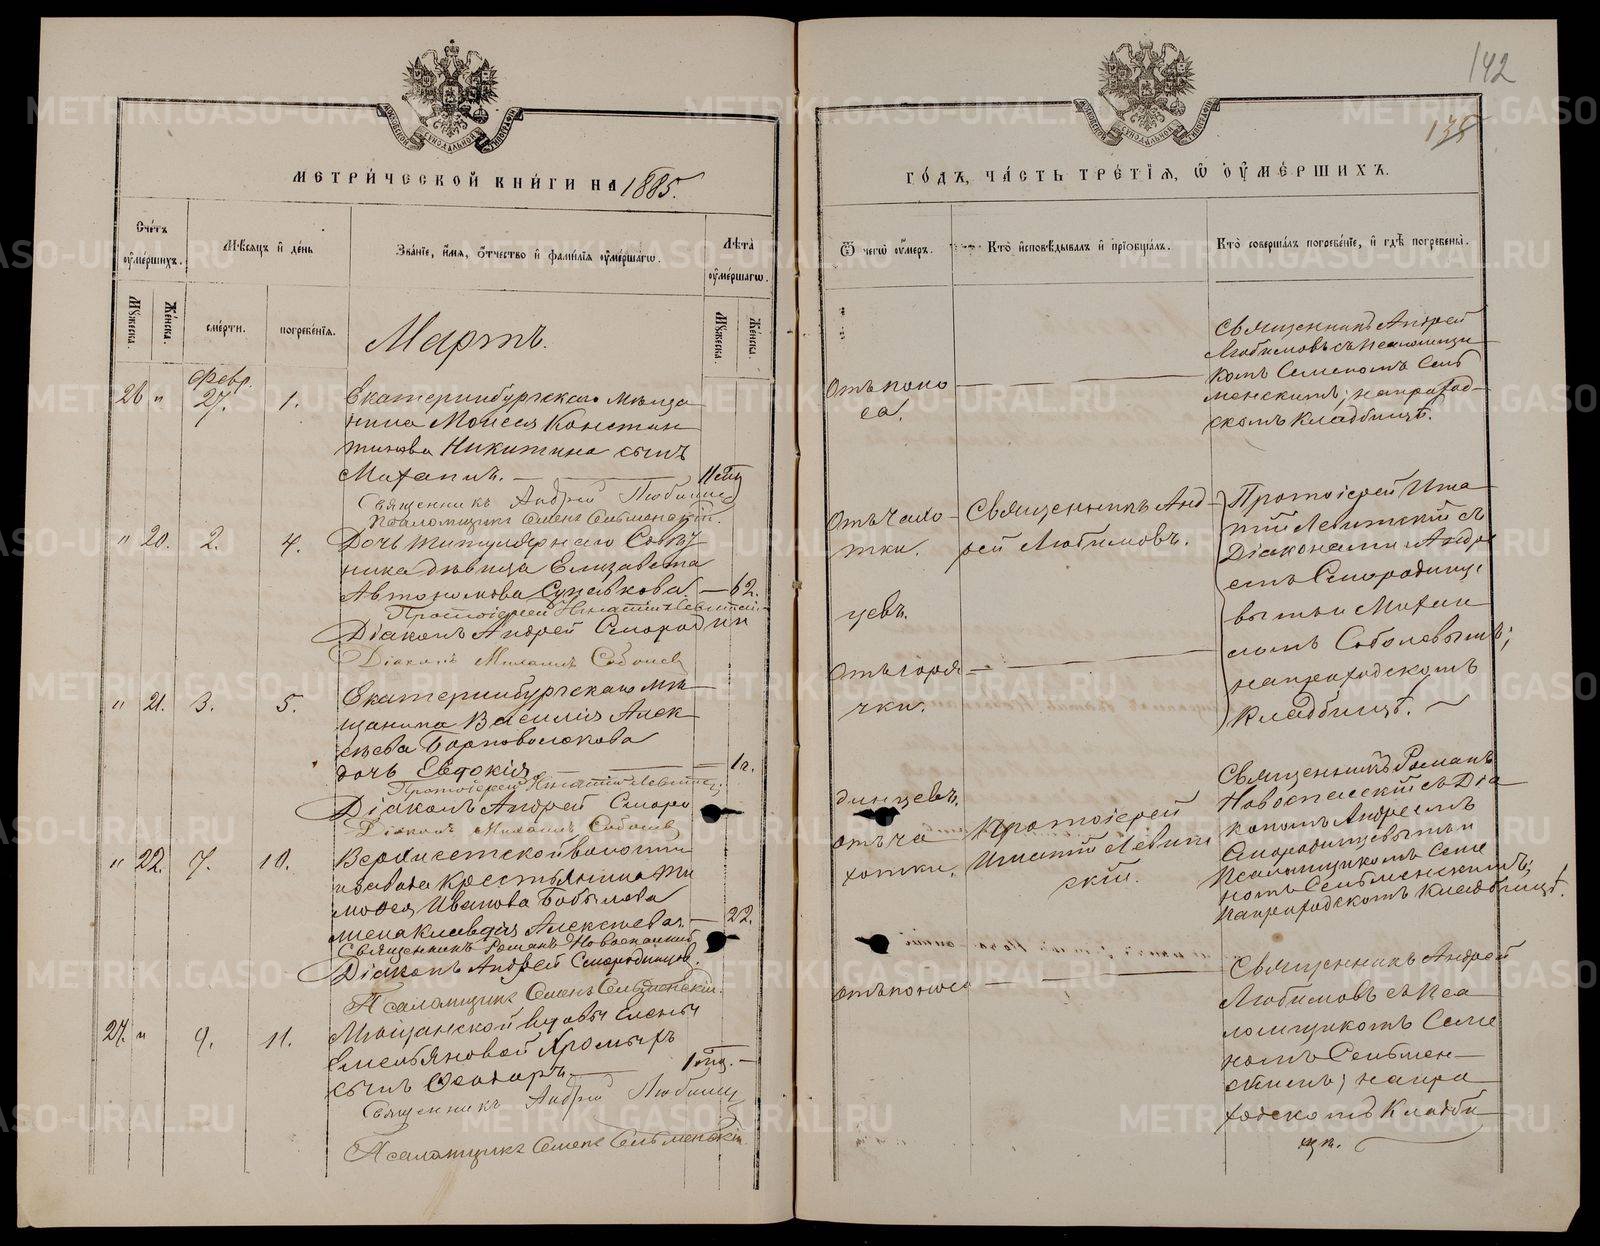 142
135
МЕТРИ́ЧЕСКОЙ КНИ́ГИ НА 1885.
ГО́ДЪ, ЧА́СТЬ ТРЕ́ТІЯ, Ѿ ОУ҆МЕ́РШИХЪ.
Сче́тъ оу҆ме́ршихъ.
Мѣ́сяцъ и҆ де́нь
Зва́ніе, и҆́мя, ѻ҆́тчество и҆ фами́лія оу҆ме́ршагѡ.
Лѣ́та оу҆ме́ршагѡ.
Мꙋ́жеска.
Же́нска.
сме́рти.
погребе́нія.
Мꙋ́жеска.
Же́нска.
Ѿ чегѡ̀ оу҆́меръ.
Кто̀ и҆сповѣ́дывалъ и҆ прїѻбща́лъ.
Кто̀ соверша́лъ погребе́ніе, и҆ гдѣ̀ погребены̀.
Мартъ.
26 " Февр. 27. 1.
Екатеринбургскаго мѣща
нина Моисея Констан
тинова Никитина сынъ
Михаилъ. —
Священникъ Андрей Любимов
Псаломщикъ Семенъ Сельменскій.
Отъ поно
са.
Священникъ Андрей
Любимовъ съ псаломщи
комъ Семеномъ Сель
менскимъ; на приход-
скомъ кладбищѣ.
" 20. 2. 4.
Дочь титулярнаго Совѣт
ника дѣвица Елизавета
Автономова — 62.
Протоіерей Игнатій Левитскій
Діаконъ Андрей Смородин
цевъ.
Діаконъ Михаилъ Соболев
Отъ чахо
тки.
Священникъ Анд
рей Любимовъ.
Протоіерей Игна
тій Левитскій съ
Діаконами Андре
емъ Смородинце
вымъ и Михаи
ломъ Соболевымъ;
на приходскомъ
кладбищѣ.
" 21. 3. 5.
Екатеринбургскаго мѣ
щанина Василія Алек
сѣева
дочь Евдокія — 1 г.
Протоіерей Игнатій Левитск.
Діаконъ Андрей Сморо
динцевъ.
Діаконъ Михаилъ Соболев
Отъ горя
чки.
" 22. 7. 10.
Верхисетской волости
и завода крестьянина Ти
мофея Иванова Бобылева
жена Клавдія Алексѣева — 22.
Священникъ Романъ Новоспасскій
Діаконъ Андрей Смородинцов.
Псаломщикъ Семенъ Сельменскій.
Отъ ча
хотки.
Протоіерей
Игнатій Левит
скій.
Священникъ Романъ
Новоспасскій съ Діа
кономъ Андреемъ
Смородинцевымъ и
Псаломщикомъ Семе
номъ Сельменскимъ;
на приходскомъ кладбищѣ.
27. " 9. 11.
Мѣщанской вдовы Елены
Емельяновой Хромыхъ
сынъ Ѳеодоръ. —
Священникъ Андрей Любимов
Псаломщикъ Семенъ Сельменскій
Отъ поноса
Священникъ Андрей
Любимовъ съ пса
ломщикомъ Семе
номъ Сельмен—
скимъ; на при
ходскомъ кладби
щѣ.